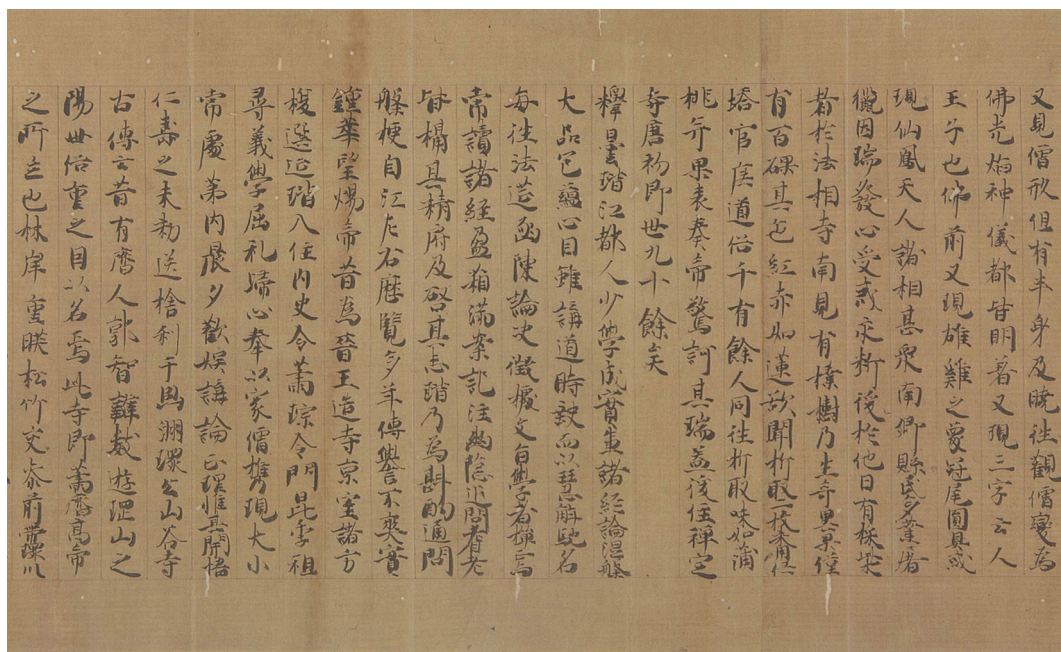 又見僧形但有半身及曉往觀僧變為
佛光焰神儀都皆明著又現三字云人
王子也佛前又現雄雞之象冠尾圓具或
現仙鳳天人諸相甚衆南鄉縣民多業屠
獵因瑞發心受戒永斷後於他日有採柴
者於法相寺南見有樸樹乃生奇異果僅
有百顆其色紅赤如蓮欲開折取一枝
塔官庶道俗千有餘人同往折取味如蒲
桃并果表奏帝驚訝其瑞蓋後住禪定
寺唐初即世九十餘矣
釋曇瑎江都人少學成實兼諸經論涅槃
大品包蘊心目雖講道時缺而以慧解馳名
每往法筵亟陳論决徵據文旨學者憚焉
常讀諸經盈箱滿案記注幽隱追問耆老
皆揖其精府反啓其志瑎乃為斟酌通問
槃梗自江左右歷覽多年傳譽不爽實
鍾華望煬帝昔為晉王造寺京室諸方
搜選延瑎入住内史令蕭琮合門昆季祖
尋義學屈礼歸心奉以家僧携現大小
常處第内晨夕歡娱講論正理惟其開悟
仁壽之末勅送舍利于熙州環公山山谷寺
古傳云昔有齊人郭智辯數遊環山之
陽世俗重之目以名焉此寺即蕭齊高帝
之所立也林岸重映松竹交參前帶環川